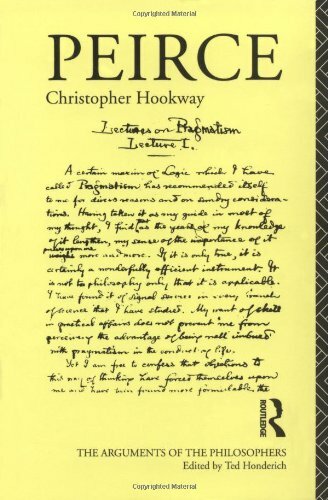 PEIRCE
Christopher Hookway
Lectures on Pragmatism
Lecture I.
A certain maxim of Logic which I have
called Pragmatism has recommended itself
to me for divers reasons and on sundry considera-
tions. Having taken it as my guide in most of
my thought, I find that as the years of my knowledge
of it lengthen, my sense of the importance of it
presses upon me
weighs more and more. If it is only true, it is
certainly a wonderfully efficient instrument. It
is not to philosophy only that it is applicable.
I have found it of signal service in every branch
of science that I have studied. My want of skill
in practical affairs does not prevent me from
perceiving the advantage of being well imbued
with pragmatism in the conduct of life.
Yet I am free to confess that objections to
this way of thinking have forced themselves upon
me and have been found more formidable the
ROUTLEDGE
THE ARGUMENTS OF THE PHILOSOPHERS
Edited by Ted Honderich